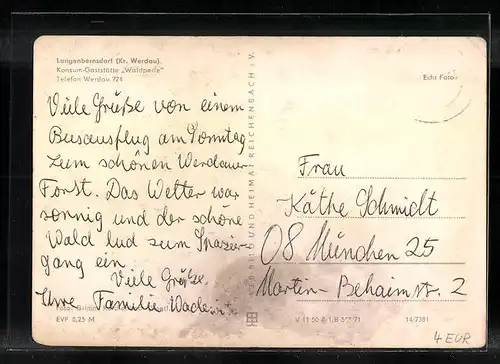 Langenbernsdorf (Kr. Werdau)
Konsum-Gaststätte „Waldperle"
Telefon Werdau 724
Echt Foto
Viele Grüße von einem
Busausflug am Sonntag
zum schönen Werdauer
Forst. Das Wetter war
sonnig und der schöne
Wald lud zum Spazier-
gang ein.
Viele Grüße
Ihre Familie
BILD UND HEIMAT REICHENBACH i. V.
Frau
Käthe Schmidt
08 München 25
Martin-Behaimstr. 2
EVP 0,25 M
V 11 50 A 1/B
14/7381
4 EUR